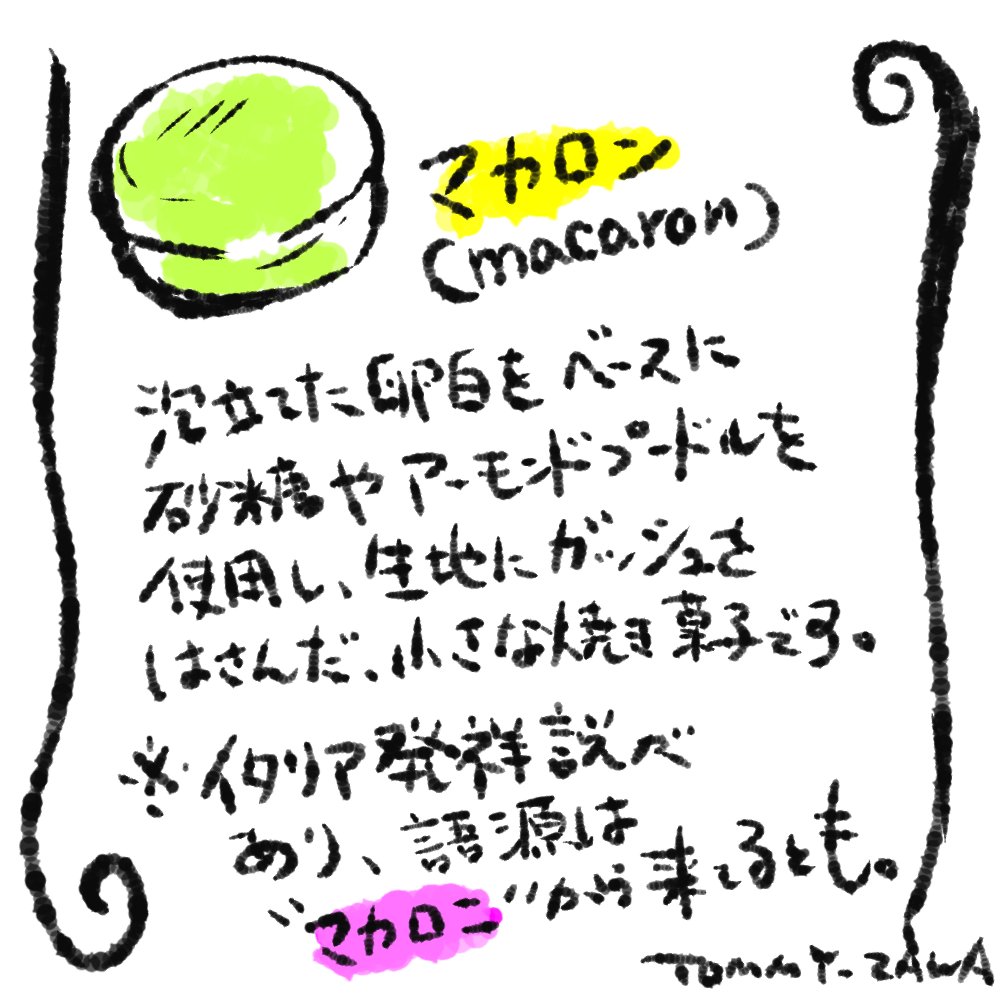 マカロン
(macaron)
泡立てた卵白をベースに
砂糖やアーモンドプードルを
使用し、生地にガッシュを
はさんだ、小さな焼き菓子です。
※イタリア発祥説が
あり、語源は
"マカロニ"から来てるとも。
TOMMY-ZAWA